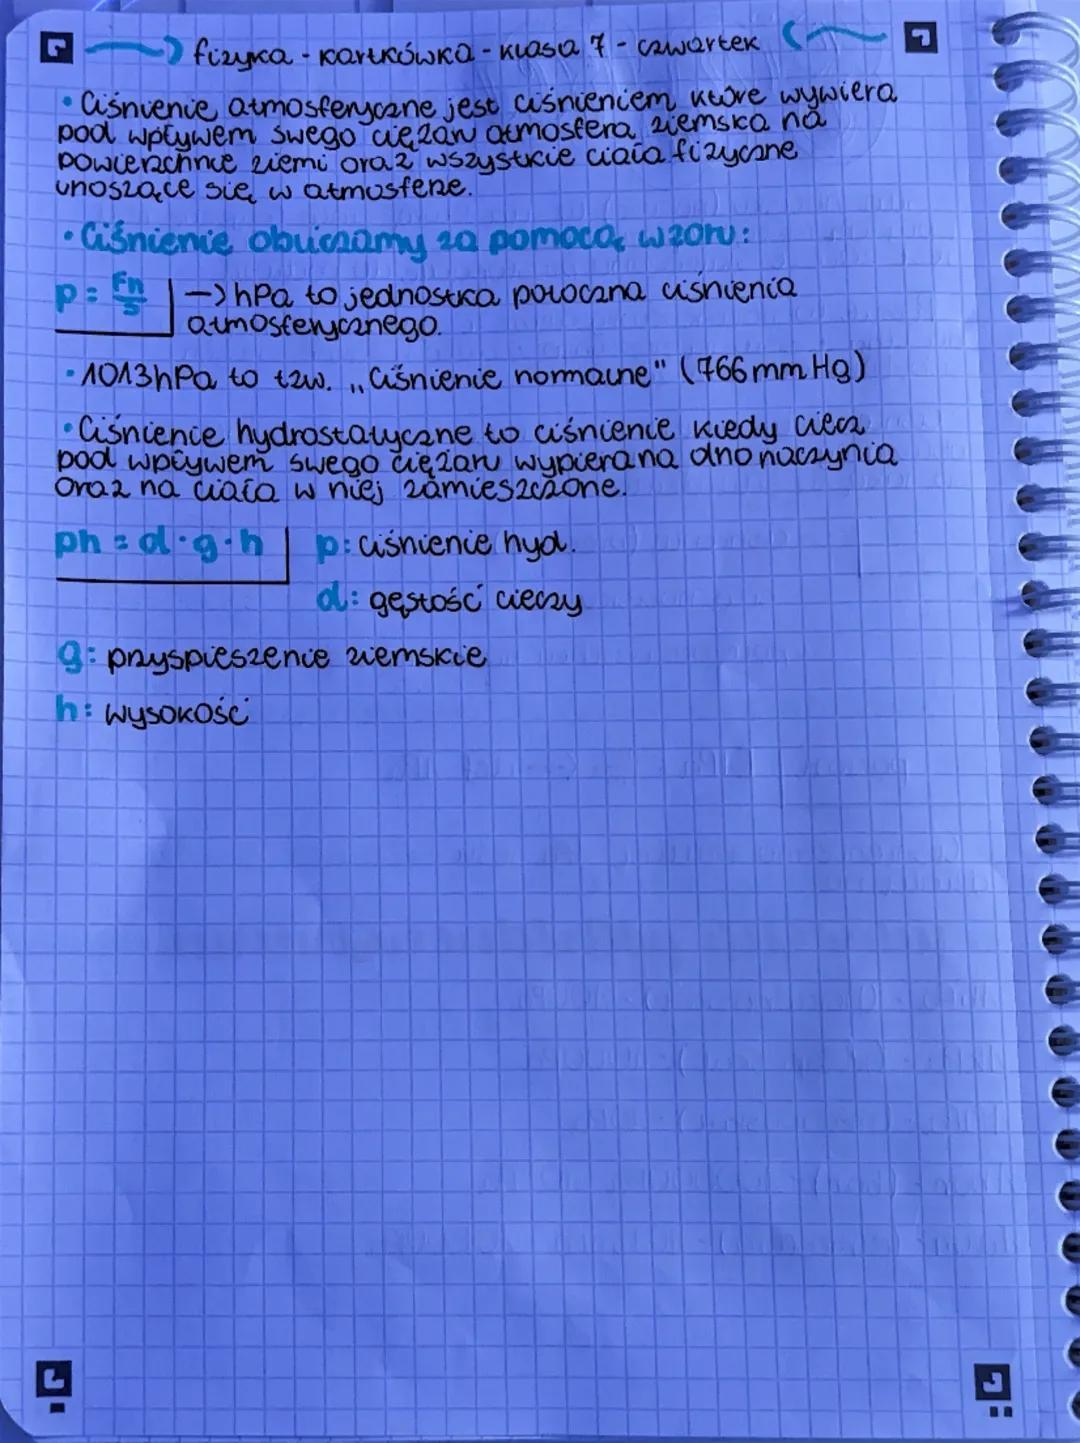 fizyka - kartkówka - klasa 7 - czwartek
• Ciśnienie atmosferyczne jest ciśnieniem które wywiera
pod wpływem swego ciężaru atmosfera ziemska na
powierzchnie ziemi oraz wszystkie ciała fizyczne
unoszące się w atmosferze.
• Ciśnienie obliczamy za pomocą wzoru:
p = Fn/S → hPa to jednostka potoczna ciśnienia
atmosferycznego.
• 1013hPa to tzw. „Ciśnienie normalne" (766 mm Hg)
• Ciśnienie hydrostatyczne to ciśnienie kiedy ciecz
pod wpływem swego ciężaru wypiera na dno naczynia
oraz na ciała w niej zamieszczone.
ph = d · g · h p: ciśnienie hyd.
d: gęstość cieczy
g: przyspieszenie ziemskie
h: wysokość